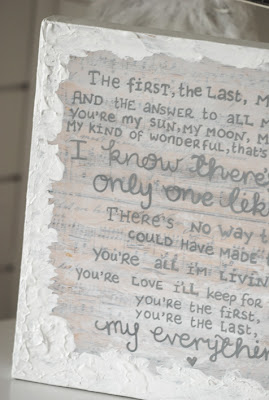 The first, the Last, M
And the answer to all M
you're my sun, my moon, m
my kind of wonderful, that's
I know there's
only one like
There's no way t
could have made
you're all I'm livin
you're love I'll keep for
you're the first,
you're the last,
my everythin